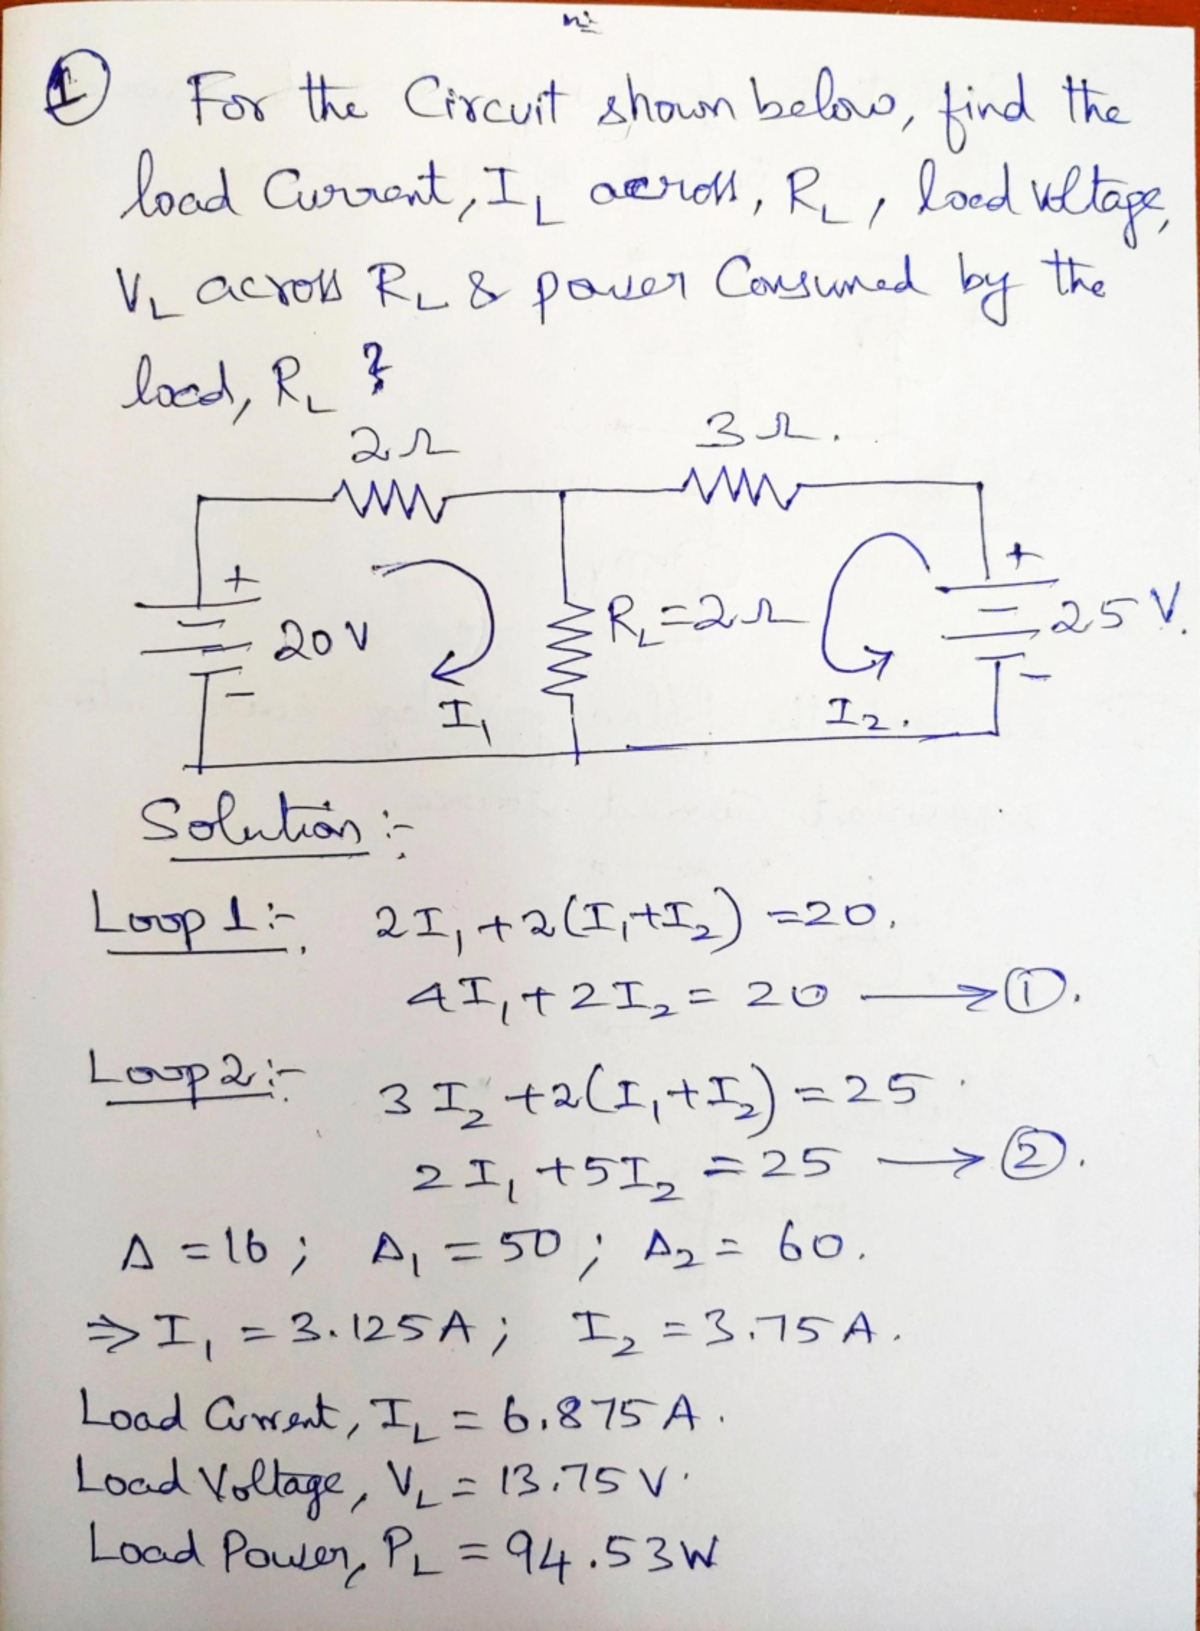 1 For the Circuit shown below, find the
load Current, I_L across, R_L, load voltage,
V_L across R_L & power Consumed by the
load, R_L ?
2Ω 3Ω.
+ +
20V R_L=2Ω 25V.
- -
I₁ I₂.
Solution:-
Loop 1:- 2I₁+2(I₁+I₂)=20.
4I₁+2I₂=20 → ①.
Loop 2:- 3I₂+2(I₁+I₂)=25.
2I₁+5I₂=25 → ②.
Δ=16; Δ₁=50; Δ₂=60.
⇒ I₁=3.125A; I₂=3.75A.
Load Current, I_L=6.875A.
Load Voltage, V_L=13.75V.
Load Power, P_L=94.53W